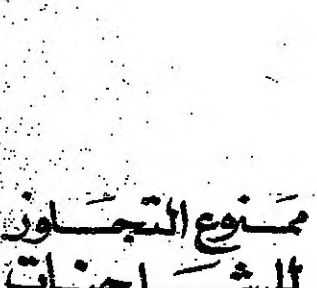 ممنوع التجاوز
للشاحنات